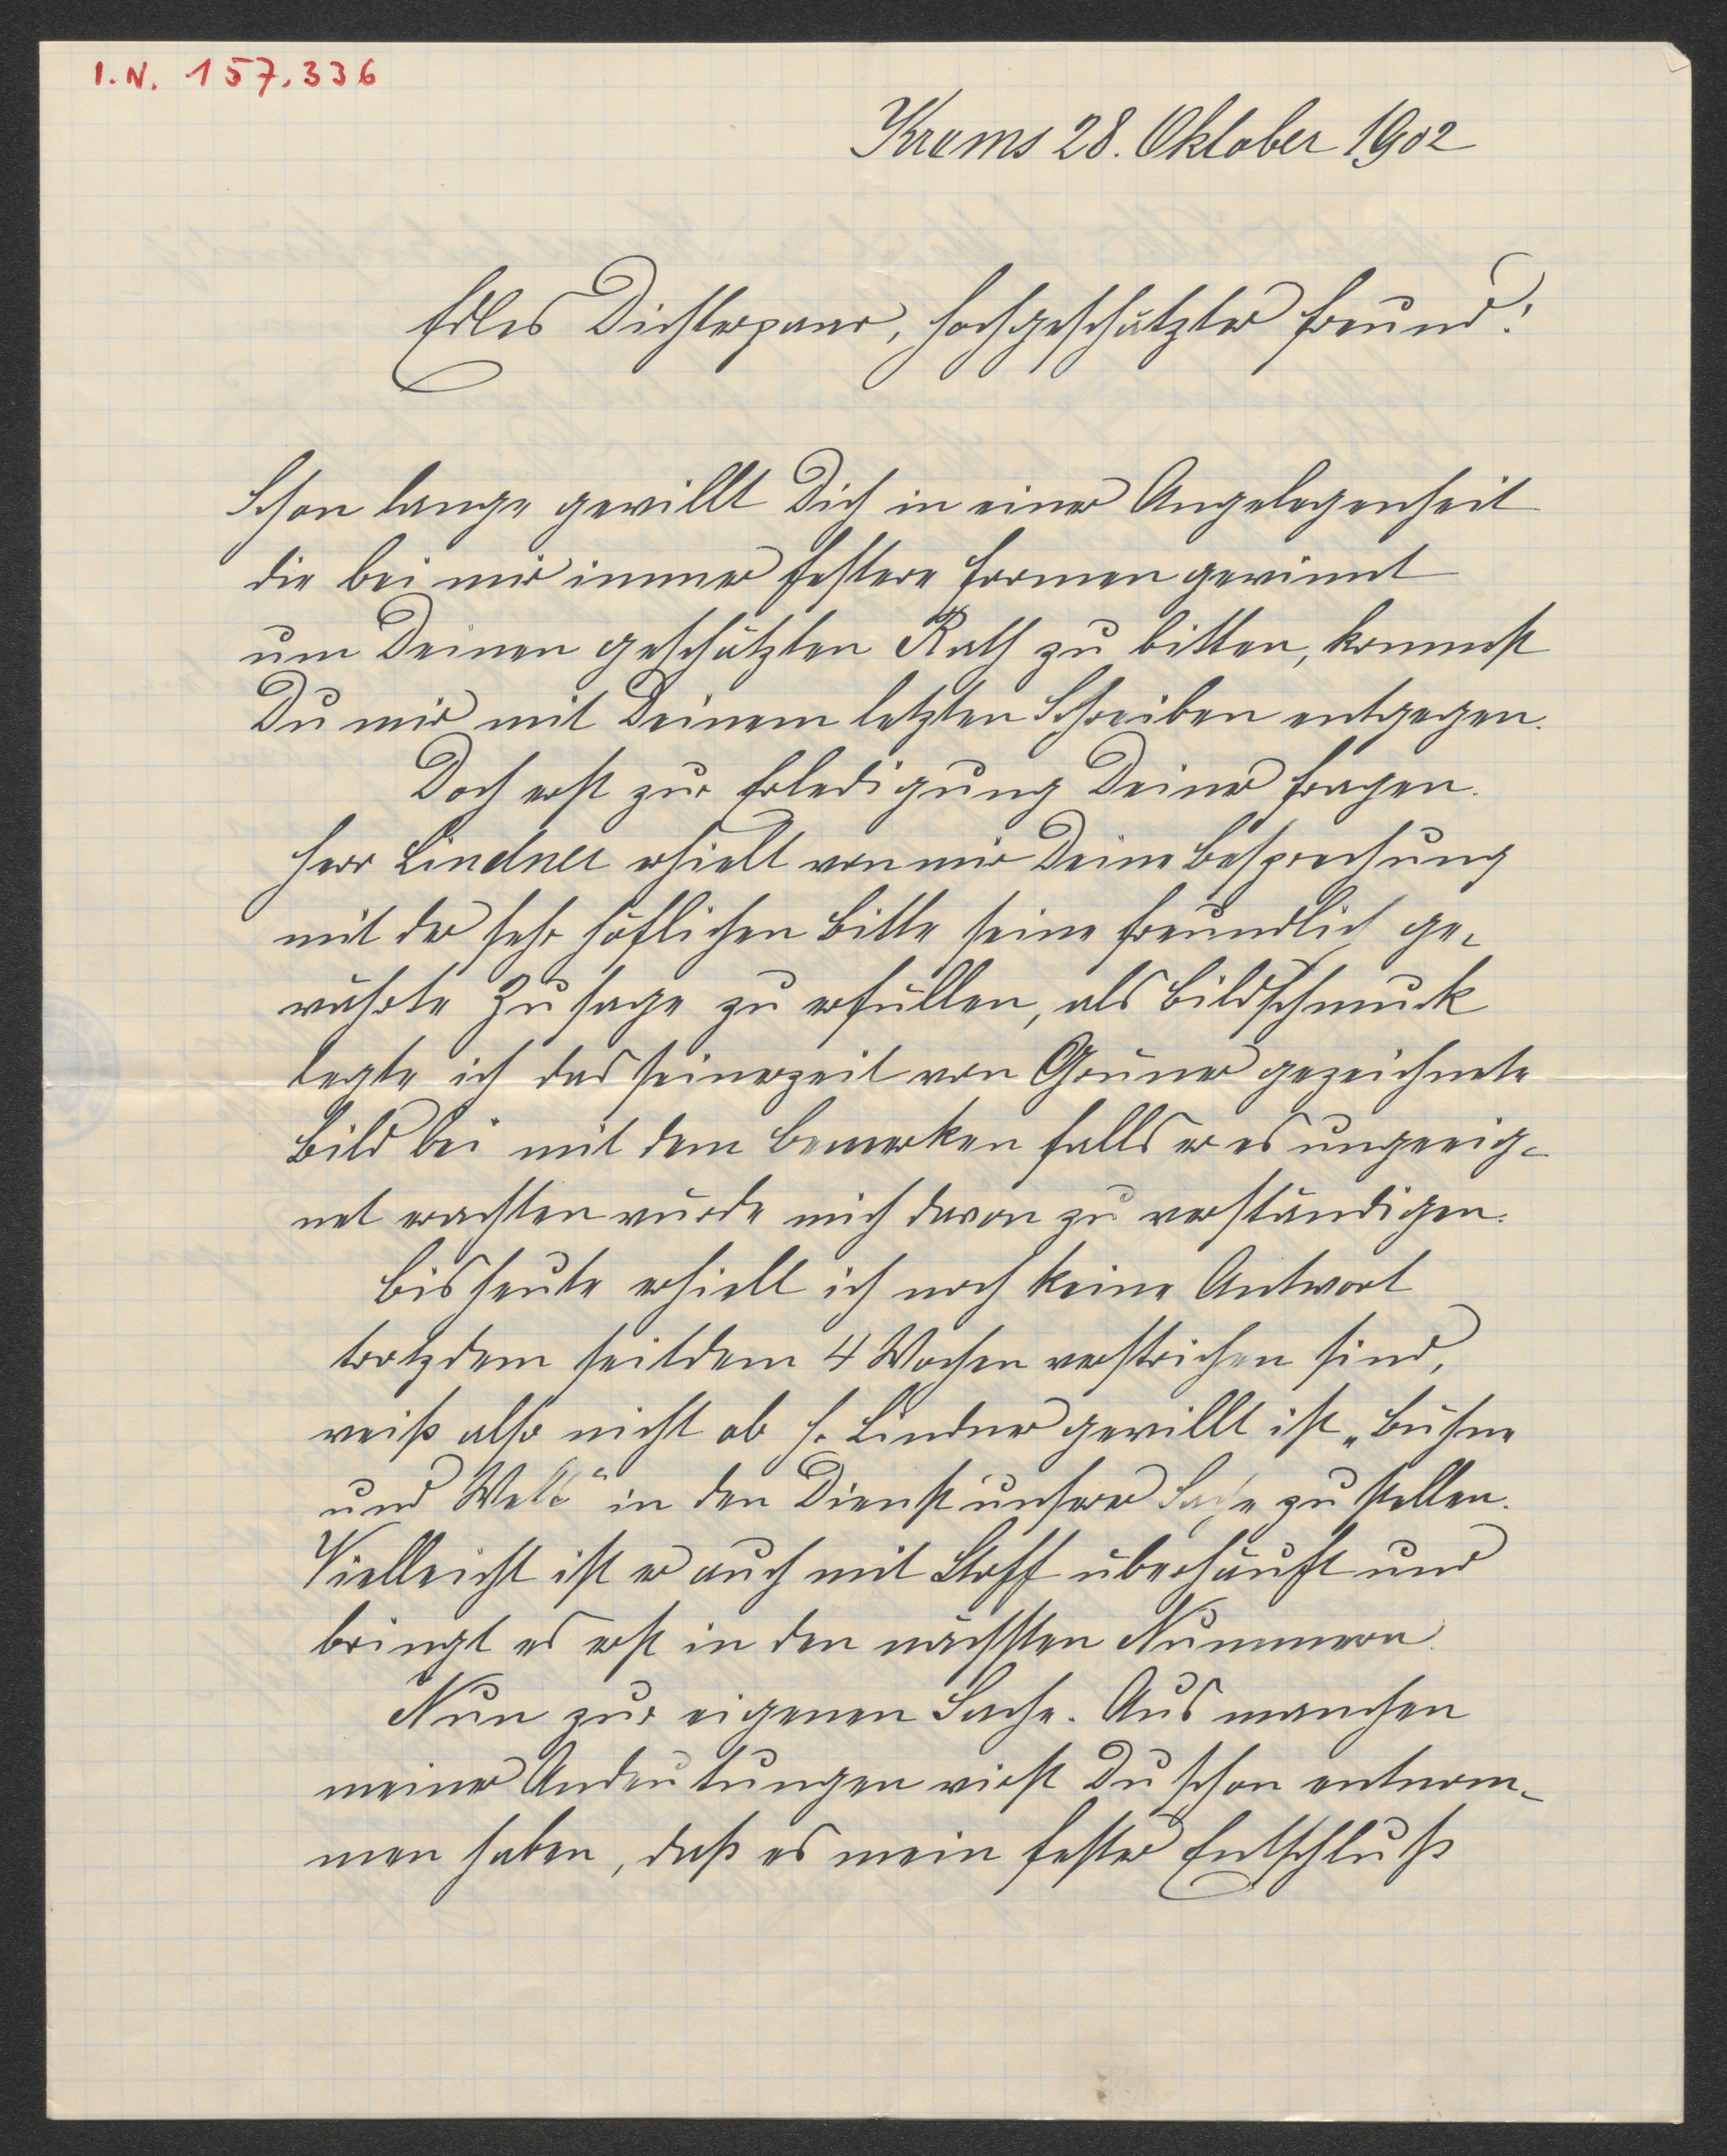 I.N. 157.336
Krems 28. Oktober 1902
Edles Dichterpaar, hochgeschätzter Freund!
Schon lange gewillt Dich in einer Angelegenheit
die bei mir immer festere Formen gewinnt
um Deinen geschätzten Rath zu bitten, kommst
Du mir mit Deinem letzten Schreiben entgegen.
Doch erst zur Erledigung Deiner Fragen.
Herr Lindner erhielt von mir Deine Besprechung
mit der sehr höflichen Bitte seine freundlich ge-
währte Zusage zu erfüllen, als Bildschmuck
legte ich das seinerzeit von Gruner gezeichnete
Bild bei mit dem Bemerken falls er es ungeeig-
net erachten würde mich davon zu verständigen.
Bis heute erhielt ich noch keine Antwort
trotzdem seitdem 4 Wochen verstrichen sind,
weiß also nicht ob H. Lindner gewillt ist „Bühne
und Welt“ in den Dienst unserer Sache zu stellen.
Vielleicht ist er auch mit Stoff überhäuft und
bringt es erst in den nächsten Nummern.
Nun zur eigenen Sache. Aus manchen
meiner Andeutungen wirst Du schon entnom-
men haben, daß es mein fester Entschluß